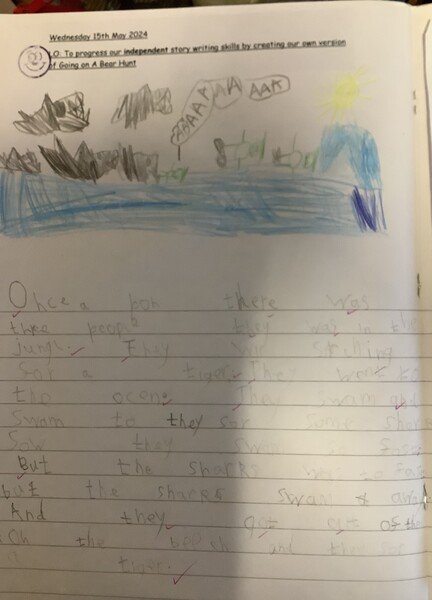 Wednesday 15th May 2024
LO: To progress our independent story writing skills by creating our own version
of Going on A Bear Hunt
AAAAA AA AAK
Once a pon there was
three people they was in the
jungl. They wr
for a tiger. They went to
the ocene They swam and
swam to they sor some shors
Sow they swam fas
But the sharks was to fas
but the sharks swam away
And they got out of the
on the beesh and they sor
tiger.